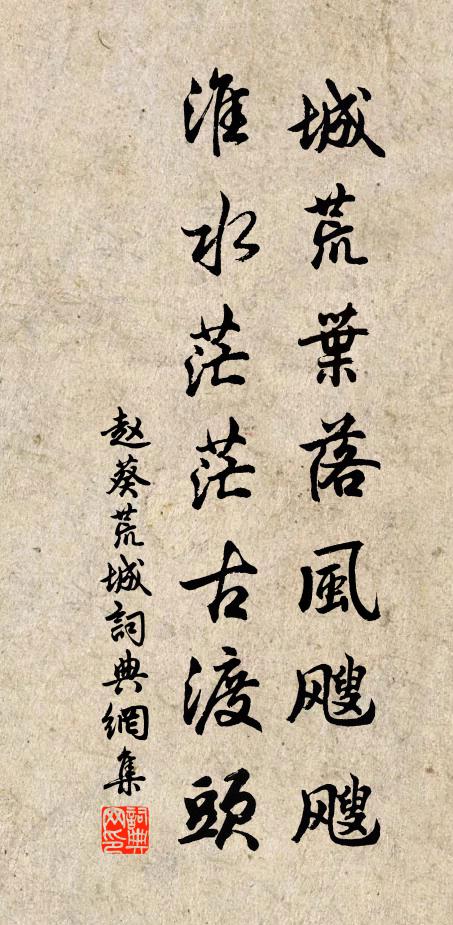 城荒葉落風颼颼
淮水茫茫古渡頭
赵葵荒城詞典網集
詞典网印